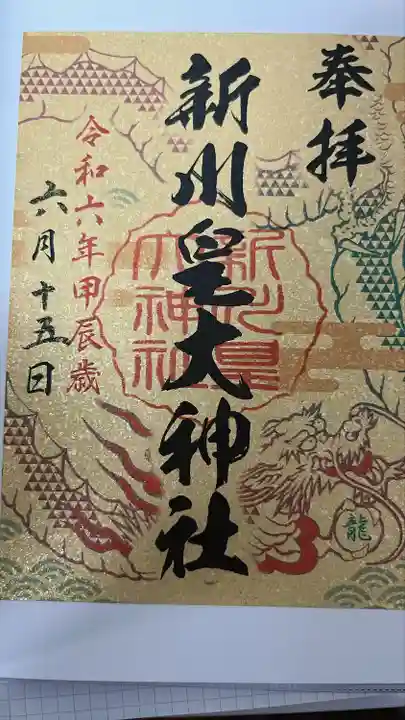 奉拝
新川皇大神社
新川皇
大神社
令和六年甲辰歳
六月十五日
龍